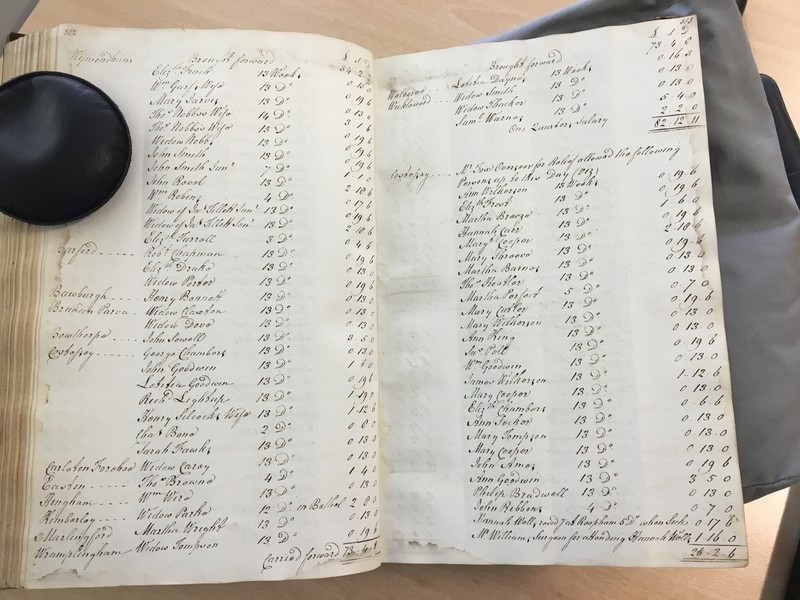 512
Wymondham Brought forward £ s d
Eliz.th Finch 13 Weeks
W.m Gay's Wife 13 D.o 0 13 0
Mary Jarvis 13 D.o 0 19 6
Tho.s Nobbs's Wife 14 D.o
Tho.s Nobbs's Wife 13 D.o 3 1 6
Widow Nobbs 13 D.o 0 19 6
John Smith 13 D.o 0 19 6
John Smith Jun.r 7 D.o
John Revel 13 D.o
W.m Robins 4 D.o 2 18 6
Widow of Jn.o Jun.r 13 D.o 0 17 6
Widow of Jn.o Sen.r 13 D.o 0 19 6
Eliz.th 3 D.o 2 18 6
Barford Rob.t Chapman 13 D.o 0 4 6
Eliz.th Drake 13 D.o 0 19 6
Widow Porter 13 D.o 0 13 0
Bawburgh Henry 13 D.o 0 19 6
Brandon Parva Widow Claxton 13 D.o 0 13 0
Widow Dove 13 D.o 0 13 0
Bowthorpe John Sewell 13 D.o 0 13 0
Costessey George Chambers 13 D.o 3 5 0
John Goodwin 13 D.o 0 13 0
Letitia Goodwin 13 D.o 1 6 0
Rich.d Lightup 13 D.o 0 19 6
Henry Silcock's Wife 13 D.o 1 19 0
Cha.s Bone 2 D.o 1 12 6
Sarah Hawks 13 D.o
Carleton Forehoe Widow Carey 13 D.o 0 13 0
Easton Tho.s Browne 4 D.o 0 13 0
Hingham W.m Ward 13 D.o 1 4 0
Kimberley Widow Parke 12 D.o in Bethel 2 8 0
Marlingford Martha Wright 13 D.o 0 13 0
Wramplingham Widow Tompson 13 D.o 0 19 6
Carried forward 73 4 8
513
£ s d
Brought forward 73 4 8
Letitia Dayne 13 Weeks 0 16 3
Welborne Widow Smith 13 D.o 0 13 0
Wicklewood Widow Thacker 13 D.o 0 13 0
Sam.l Warnes 13 D.o 5 4 0
One Quarter's Salary 2 2 0
82 12 11
Costessey M.r Fox Overseer for Relief allowed the following
Persons up to this Day
Ann Wilkerson 13 Weeks 0 19 6
Eliz.th Frost 13 D.o 0 19 6
Martha Breeze 13 D.o 1 6 0
Hannah Carr 13 D.o 0 19 6
Mary Cooper 13 D.o 2 18 6
Mary 13 D.o 0 19 6
Martha Barnes 13 D.o 0 13 0
Tho.s 13 D.o 0 13 0
Martha 5 D.o 0 7 0
Mary Custer 13 D.o 0 19 6
Mary Wilkerson 13 D.o 0 13 0
Ann King 13 D.o 0 13 0
Jn.o Polt 13 D.o 0 19 6
W.m Goodwin 13 D.o 0 13 0
James Wilkerson 13 D.o 1 12 6
Mary Cooper 13 D.o 0 13 0
Eliz.th Chambers 13 D.o 0 6 6
Ann 13 D.o 0 13 0
Mary Tompson 13 D.o 0 13 0
Mary Cooper 13 D.o 0 13 0
John Ames 13 D.o 0 19 6
Ann Goodwin 13 D.o 3 5 0
Philip Bradwell 13 D.o 0 13 0
John Ribbens 4 D.o 0 7 0
Hannah Wells, at Reepham when Sick 0 17 6
M.r Williams, Surgeon for attending Hannah Wells 1 16 0
26 2 6